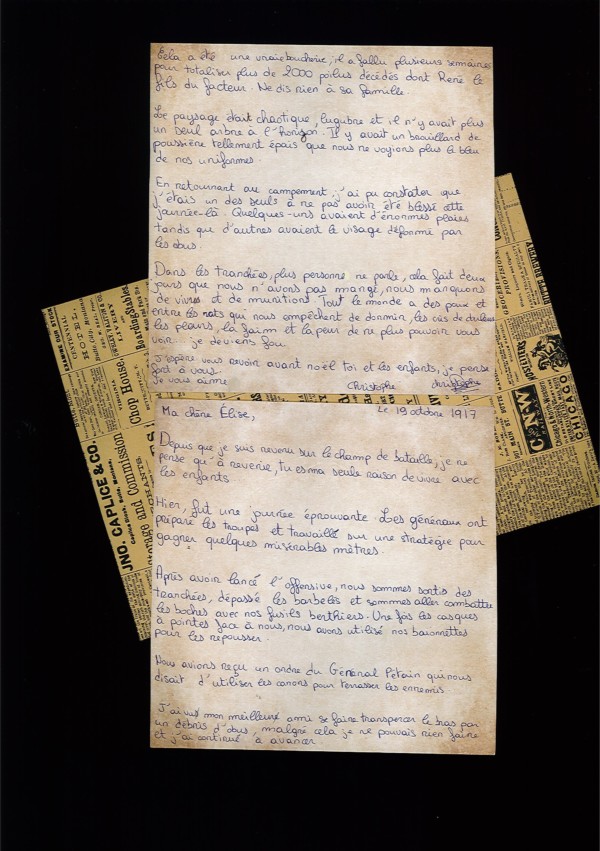 Cela a été une vraie boucherie, il a fallu plusieurs semaines
pour totaliser plus de 2000 poilus décédés dont René le
fils du facteur. Ne dis rien à sa famille.
Le paysage était chaotique, lugubre et il n'y avait plus
un seul arbre à l'horizon. Il y avait un brouillard de
poussière tellement épais que nous ne voyions plus le bleu
de nos uniformes.
En retournant au campement, j'ai pu constater que
j'étais un des seuls à ne pas avoir été blessé cette
journée-là. Quelques-uns avaient d'énormes plaies
tandis que d'autres avaient le visage déformé par
les obus.
Dans les tranchées, plus personne ne parle, cela fait deux
jours que nous n'avons pas mangé, nous manquons
de vivres et de munitions. Tout le monde a des poux et
entre les rats qui nous empêchent de dormir, les cris de douleurs
les pleurs, la faim et la peur de ne plus pouvoir vous
voir... je deviens fou.
J'espère vous revoir avant noël toi et les enfants, je pense
fort à vous.
Je vous aime Christophe
Ma chère Élise, Le 19 octobre 1917
Depuis que je suis revenu sur le champ de bataille, je ne
pense qu'à revenir, tu es ma seule raison de vivre avec
les enfants
Hier, fut une journée éprouvante. Les généraux ont
préparé les troupes et travaillé sur une stratégie pour
gagner quelques misérables mètres.
Après avoir lancé l'offensive, nous sommes sortis des
tranchées, dépassé les barbelés et sommes aller combattre
les boches avec nos fusils berthiers. Une fois les casques
à pointes face à nous, nous avons utilisé nos baïonnettes
pour les repousser.
Nous avions reçu un ordre du Général Pétain qui nous
disait d'utiliser les canons pour terrasser les ennemis.
J'ai vu mon meilleur ami se faire transpercer le bras par
un débris d'obus, malgré cela je ne pouvais rien faire
et j'ai continué à avancer.
JNO. CAPLICE & CO.
Chop House.
and Commission
HOTEL,
LIVERY
Boarding Stables
C&NW
CHICAGO